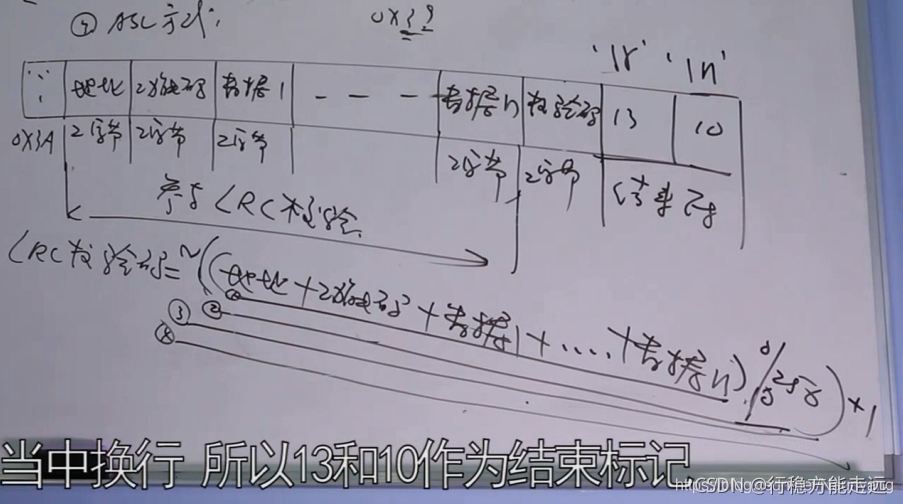 ② ASC方式: 0x3?
'\r' '\n'
: 地址 功能码 数据1 — — — 数据n 校验码 13 10
0x3A 2字节 2字节 2字节 2字节 2字节 结束符
参与LRC校验
LRC校验码=~((地址+功能码+数据1+....+数据n)%256)+1
① ② ③ ④
当中换行 所以13和10作为结束标记
CSDN @行稳方能走远